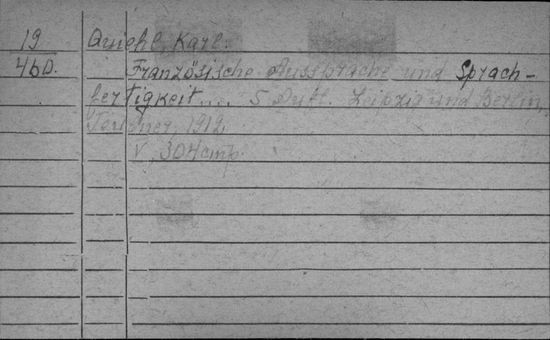 19
460.
Quiehl, Karl.
Französische Aussprache und Sprach-
fertigkeit... 5 Aufl. Leipzig und Berlin,
Teubner, 1912
V, 304 cmp.